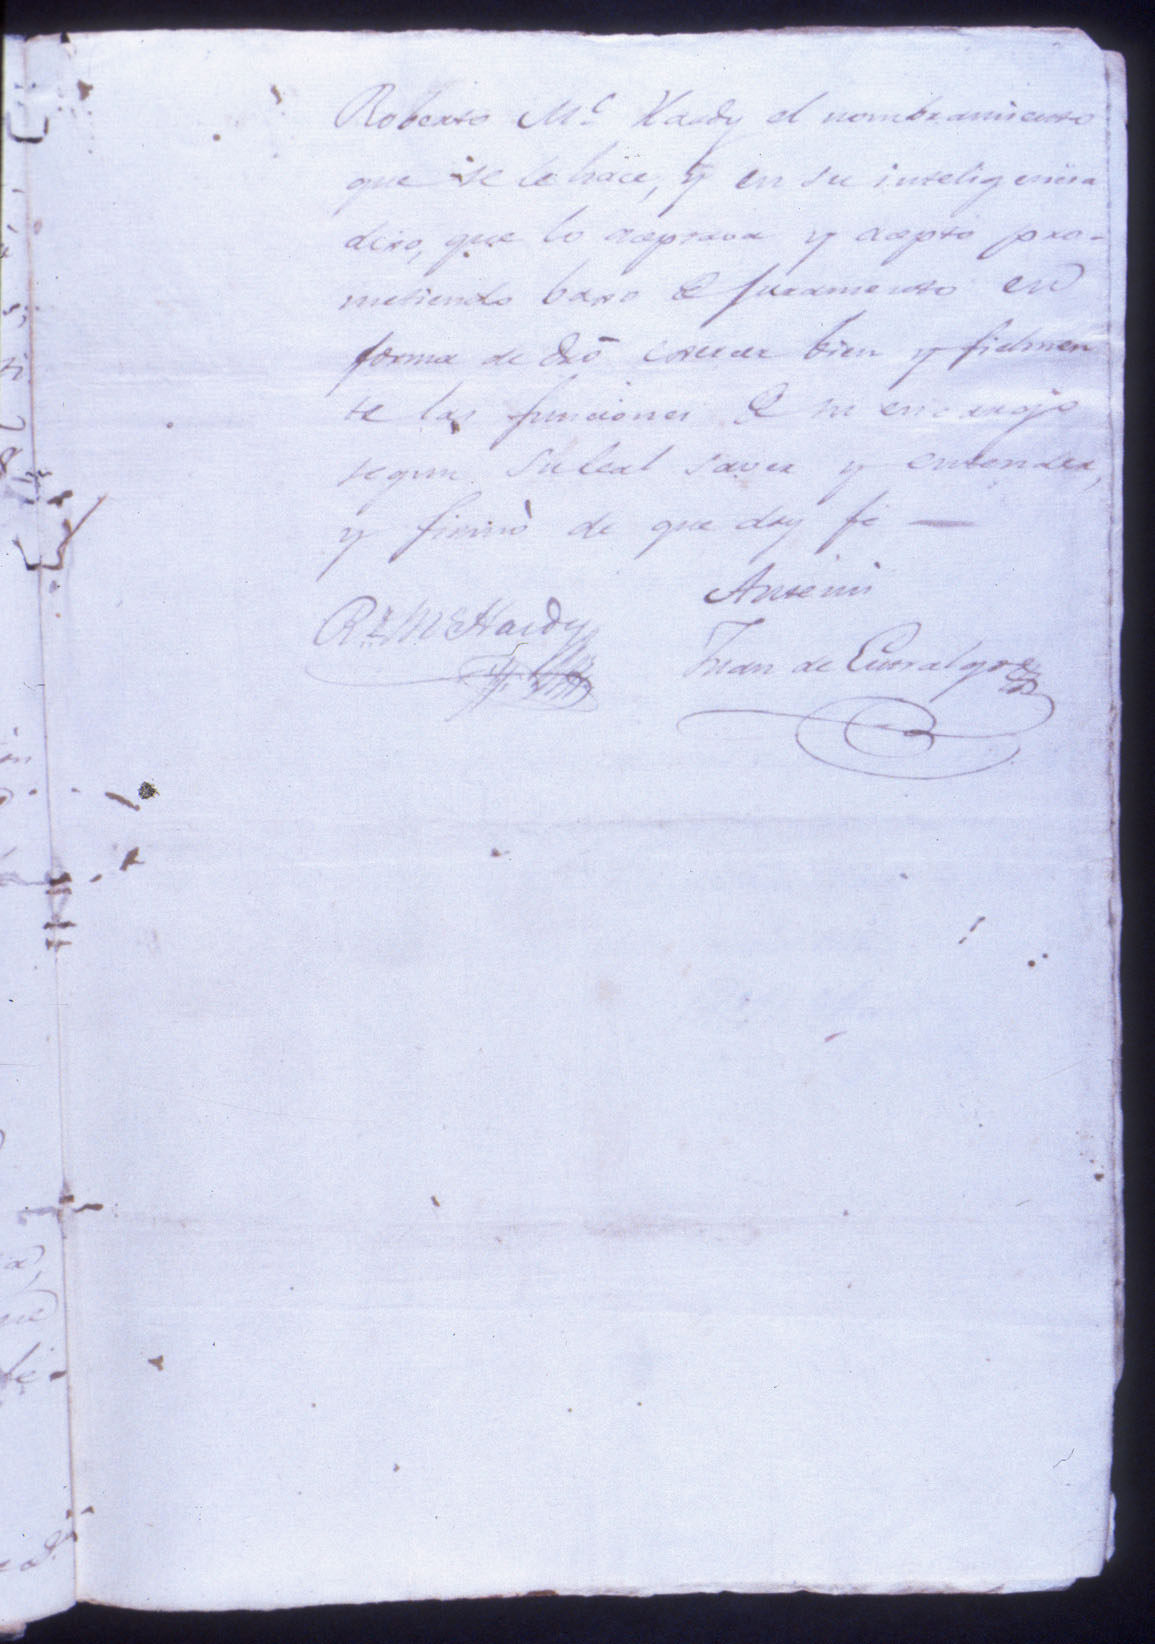 Roberto Mc Hardy el nombramiento
que se le hace, y en su inteligencia
dixo, que lo aceptava y acepto pro-
metiendo baxo de juramento en
forma de dro exercer bien y fielmen
te las funciones de su encargo
segun su leal saver y entender,
y firmò de que doy fe —
Antemi
Rt McHardy
Juan de